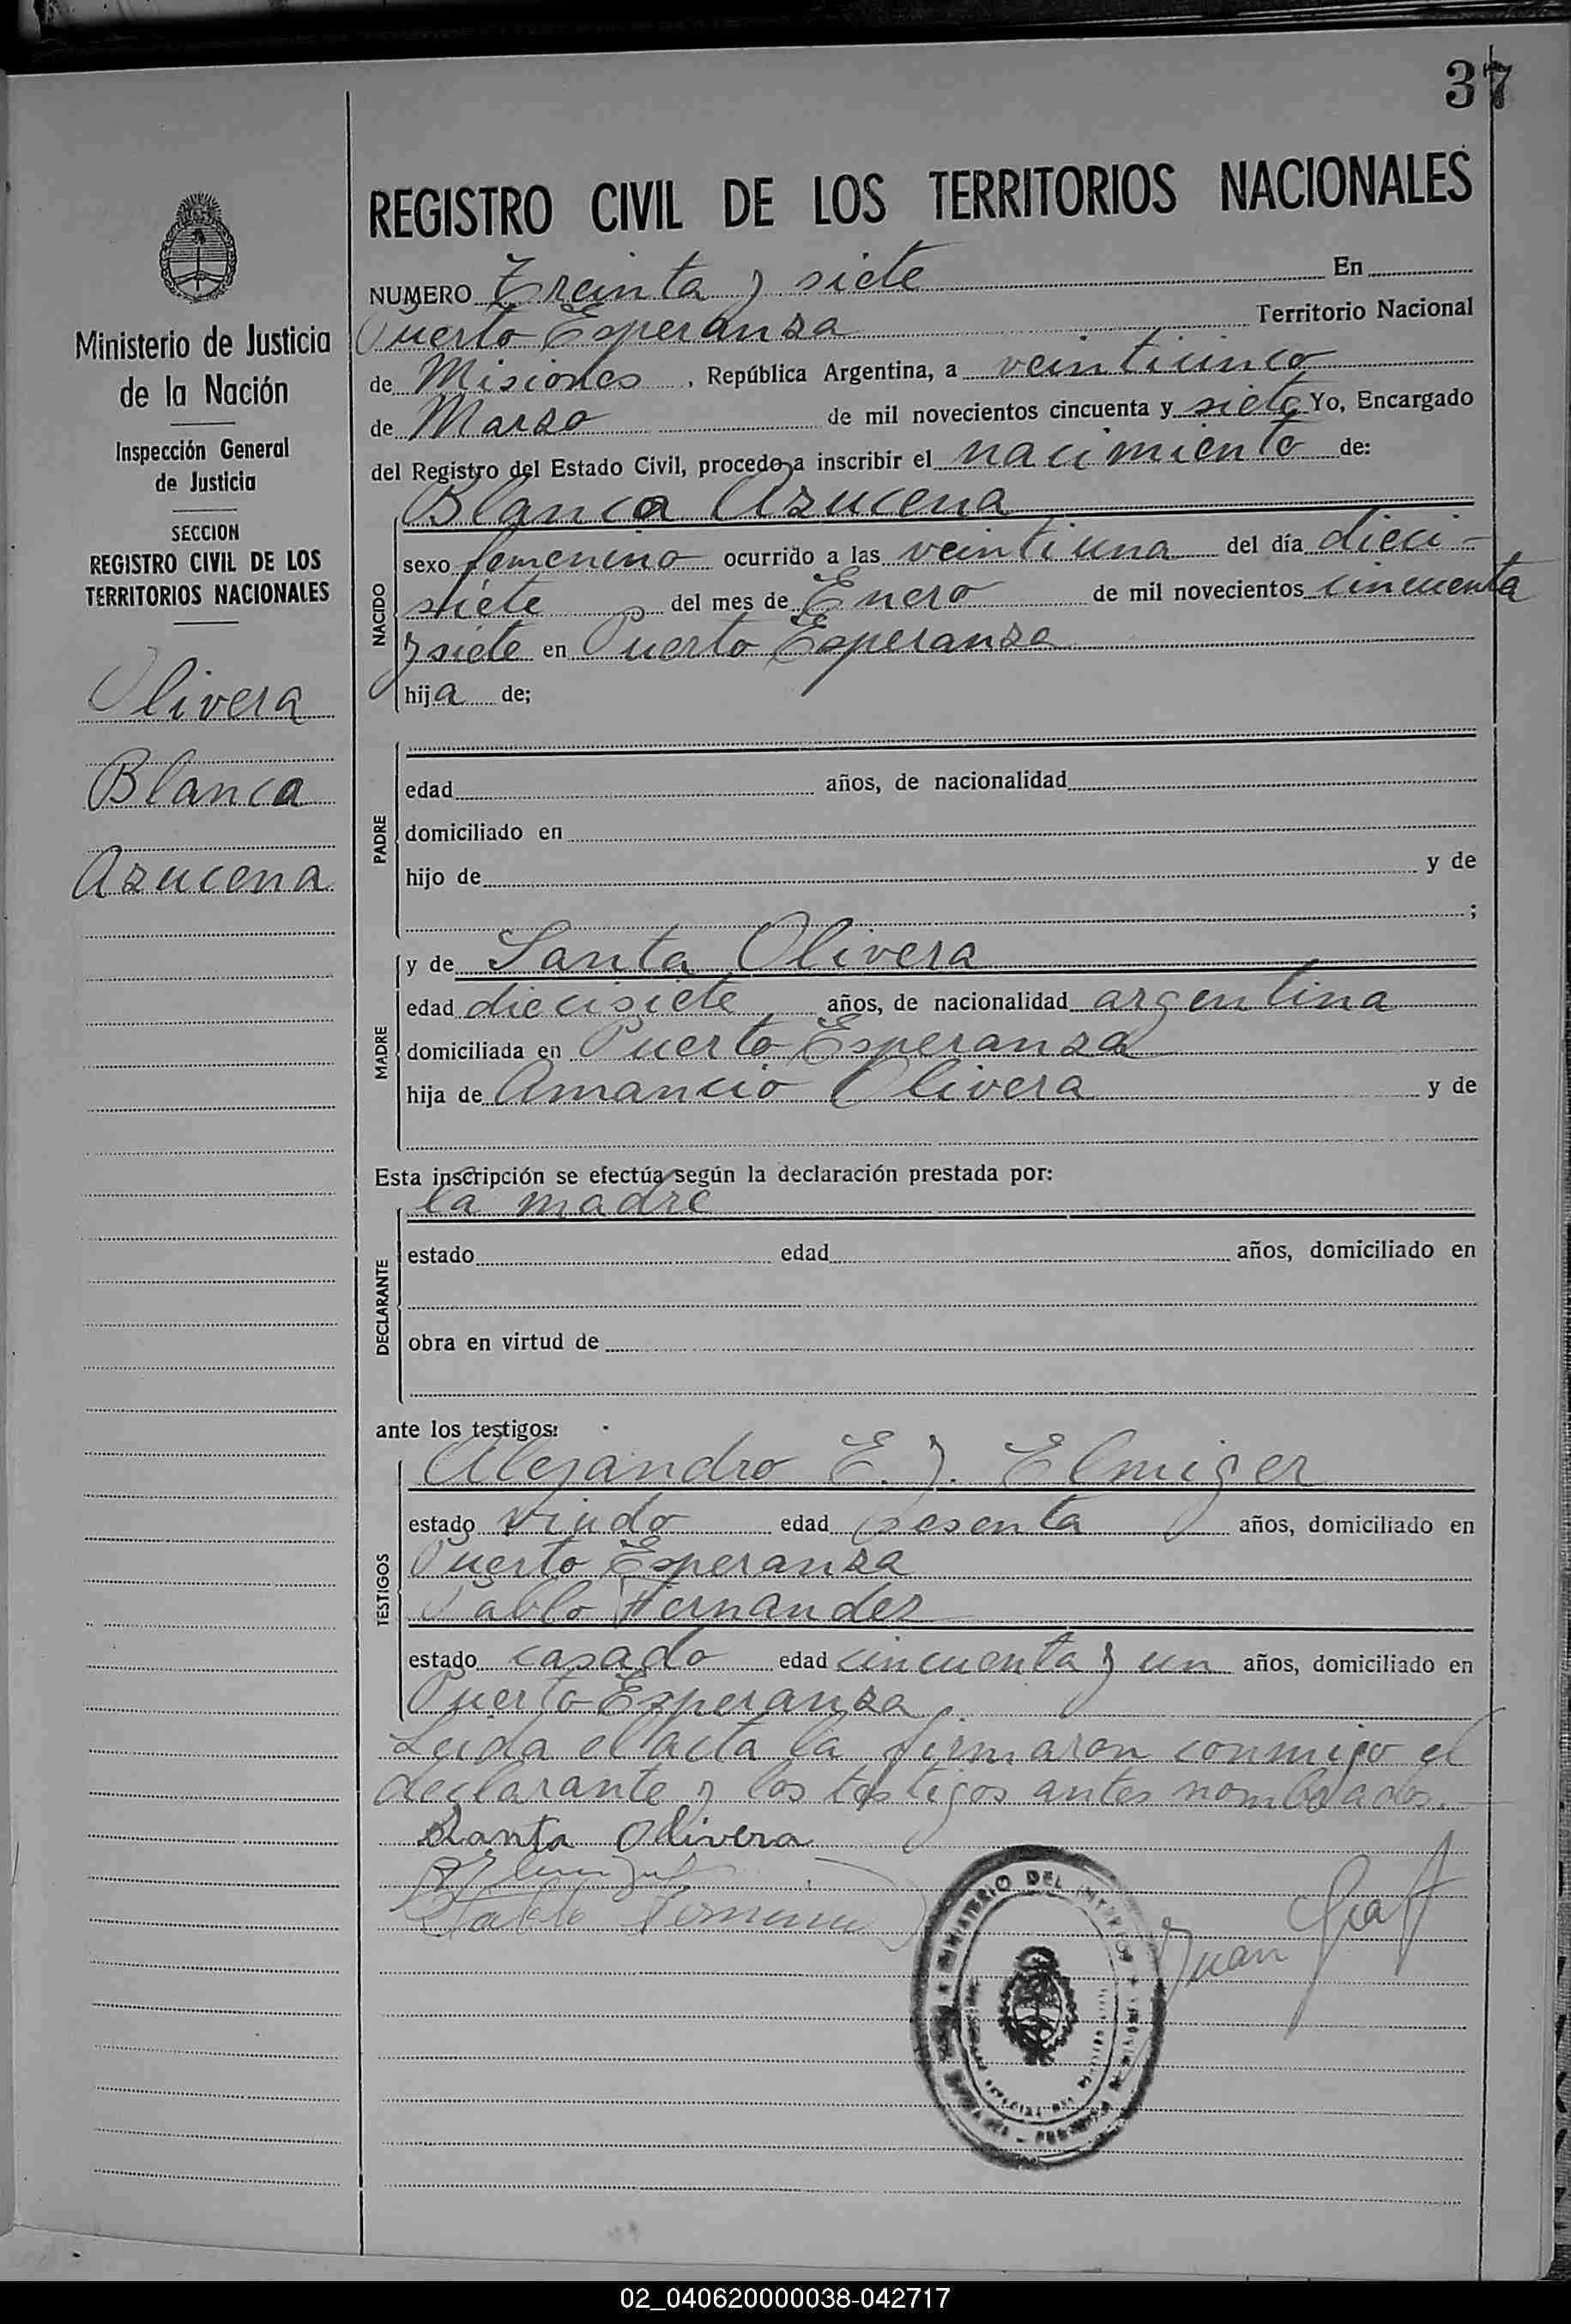 37
REGISTRO CIVIL DE LOS TERRITORIOS NACIONALES
Ministerio de Justicia
de la Nación
Inspección General
de Justicia
SECCION
REGISTRO CIVIL DE LOS
TERRITORIOS NACIONALES
Olivera
Blanca
Azucena
NUMERO Treinta y siete En
Puerto Esperanza Territorio Nacional
de Misiones, República Argentina, a veinticinco
de Marzo de mil novecientos cincuenta y siete Yo, Encargado
del Registro del Estado Civil, procedo a inscribir el nacimiento de:
Blanca Azucena
NACIDO
sexo femenino ocurrido a las veintiuna del día dieci-
siete del mes de Enero de mil novecientos cincuenta
y siete en Puerto Esperanza
hija de;
PADRE
edad años, de nacionalidad
domiciliado en
hijo de y de
;
MADRE
y de Santa Olivera
edad diecisiete años, de nacionalidad argentina
domiciliada en Puerto Esperanza
hija de Amancio Olivera y de
Esta inscripción se efectúa según la declaración prestada por:
la madre
DECLARANTE
estado edad años, domiciliado en
obra en virtud de
ante los testigos:
Alejandro E. J. Elmiger
TESTIGOS
estado viudo edad sesenta años, domiciliado en
Puerto Esperanza
Pablo Fernandez
estado casado edad cincuenta y un años, domiciliado en
Puerto Esperanza.
Leida el acta la firmaron conmigo el
declarante y los testigos antes nombrados.-
Santa Olivera
Pablo
Juan Graf
MINISTERIO DEL INTERIOR
02_040620000038-042717